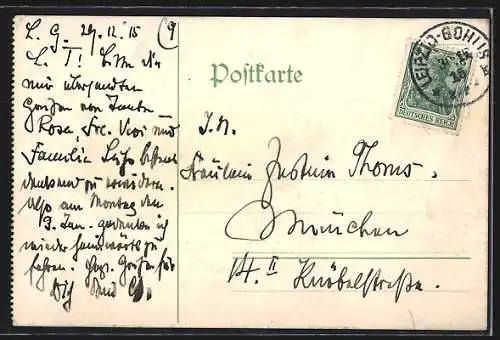 L. G. 29.12.15
9
L. T! Bitte die
mir übersandten
Grüßen von Tante
Rosa, Frl. Vroi und
Familie
dankend zu erwidern.
Also am Montag den
3. Jan. gedenke ich
wieder heimwärts zu
fahren. Hzgl. Grüße für
Dich und
Postkarte
LEIPZIG-GOHLIS
DEUTSCHES REICH
I. H.
Fräulein Justine Thoms.
München
14. II Knöbelstraße.